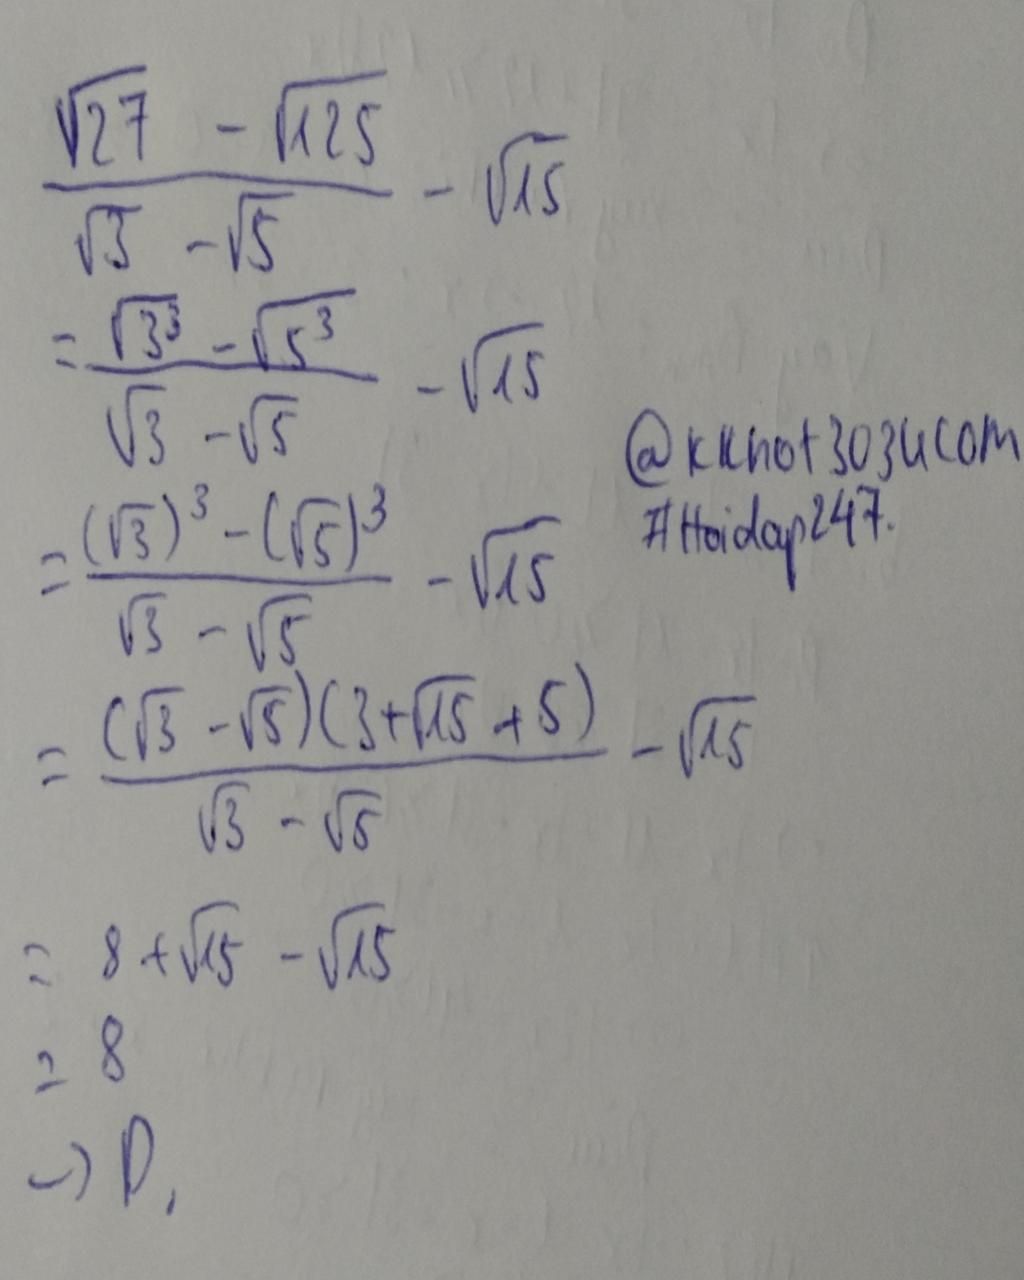 (√27 - √125)/(√3 - √5) - √15
= (√3³ - √5³)/(√3 - √5) - √15
@kkhot3034com
#Hoidap247.
= ((√3)³ - (√5)³)/(√3 - √5) - √15
= ((√3 - √5)(3+√15 + 5))/(√3 - √5) - √15
= 8 + √15 - √15
= 8
→ D.